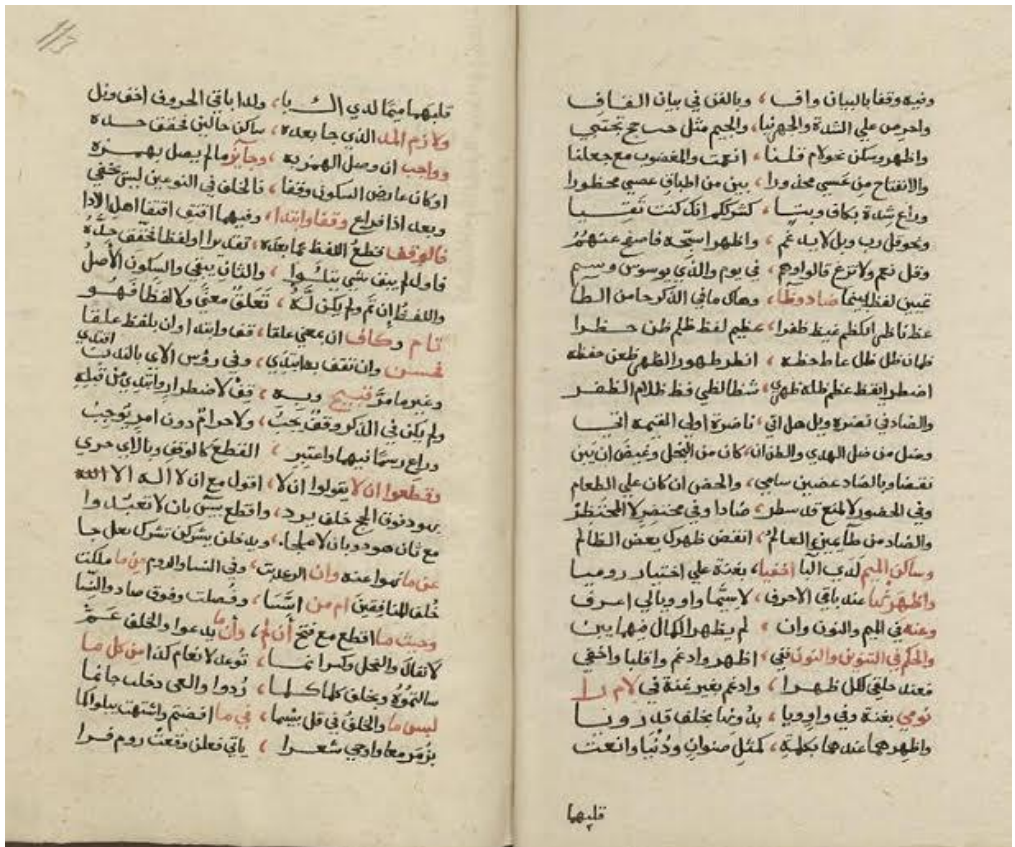 وفيه وقفا بالبيان واف ، وبالفن في بيان القاف
واحرص على الشدة والجهر نيا ، والجيم مثل حب حج تجتبي
واظهر وسكن نحو لام قلنا ، انعمت والمغضوب مع جعلنا
والانفتاح من عسى محذورا ، بين من اطباق عصي محظورا
وراع شدة بكاف وبتا ، كشرككم افك كنت تقتيا
ونحو قل رب وبل لا بد غم ، واظهر اسبحه فاصفح عنهم
وقل نعم ولا تزغ قالوا وهم ، في يوم والذي يوسوس وسم
تميين لفظ بينما ضاد وظا ، وهاك ما في الذكر جا من الظا
عظ ناظر انكظم غيظ ظفرا ، عظيم لفظ ظلم ظن حظرا
ظمان ظل ظل عاط حظه ، انظر ظهور الظهر ظعن حفظه
اضطر ايقظ عظم ظله ظهري ، شظا لظى فظ ظلام الظفر
والضاد في نضرة ويل هل اتى ، ناضرة اولى القيمة اتى
وضل من ضل الهدى والظن ان ، كان من البخل وغيض ان يبن
نقضا وبالضاد عضين سامي ، والحض ان كان على الطعام
وفي الحضور لا لمنع قد سطر ، ضادا وفي محتضر لا المحتظر
والضاد من طاعين العالم ، انقض ظهرك يعض الظالم
وساكن الميم لدي البا اخفيا ، بغنة على اختيار روميا
واظهرنها عند باقي الاحرف ، لا سيما واو وبا لي اعرف
وغنه في الميم والنون وان ، لم يظهرا اكمال فهما يبن
والحكم في التنوين والنون نفي ، اظهر وادغم واقلبا واخفي
فعند حلقي لكل ظهرا ، وادغم بغير غنة في لام را
نومي بغنة وفي واو ويا ، بدء وضا بخلف قد رونا
واظهرهما عندها بكلمة ، كمثل صنوان ودنيا وانعت
قلبهما
قلبهما ميما لدي الـبا ، ولدا باقي الحروف اخف وبل
ولازم المد الذي جا بعده ، ساكن حالين فحقق حده
وواجب ان وصل الهمز به ، وجايز ما لم يصل بهمزه
او كان عارض السكون وقفا ، فالخلف في النوعين ليس يخفى
وبعد اذا فراع وقفا وابتدا ، وفيهما اقتف اقتفا اهل الادا
فالوقف قطع اللفظ عما بعده ، تقديرا او لفظا فحقق حده
فاول لم يبق شي يتلوا ، والثان يبقى والسكون الاصل
واللفظ ان تم ولم يكن له ، تعلق معنى ولا لفظا فهو
تام وكاف ان بمعنى علقا ، قف وابتدا وان بلفظ علقا
فحسن وان تقف بها ابتدي ، وفي رؤس الاي بالندب اقتدي
وغير ما مر قبيح وبه ، قف لاضطرار وابتدي من قبله
ولم يكن في الذكر وقف يجب ، ولا حرام دون امر يوجب
وراع رسما نبها واعتبر ، القطع كالوقف وبالاي حري
وقطعوا ان لا يقولوا ان لا ، اقول مع ان لا اله الا الله
بهود فوق الحج خلف يرد ، واقطع بيس بان لا تعبدوا
مع ثان هود وبان لا ملجا ، ويدخلن يشركن تشرك تعل جا
عن ما نهوا عنه وان الرعدت ، وفي النسا والروم من ما ملكت
خلف المنافقين ام من اسسا ، وفصلت وفوق صاد والنسا
وحيث ما اقطع مع فتح ان لم ، وان ما يدعوا والخلف عم
لانفال والنحل وكسر انما ، توعد لانعام كذا من كل ما
سالتموه وبخلف كلما كلما ، ردوا والقي دخلت جا نما
لبيس ما والخلف في قل بيسما ، في ما افضتم واشتهت يبلوا كما
بزمر معا واوحي شعرا ، ياتي فعلن وقعت روم فرا